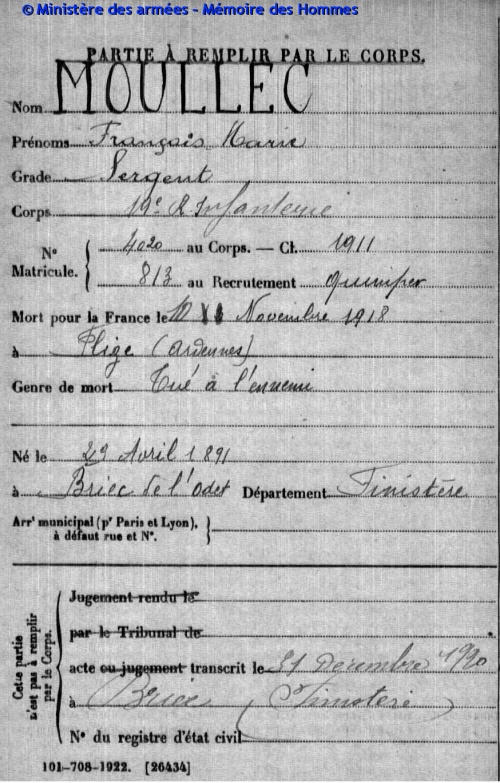 © Ministère des armées - Mémoire des Hommes
PARTIE À REMPLIR PAR LE CORPS.
Nom MOULLEC
Prénoms François Marie
Grade Sergent
Corps 19e R Infanterie
N° Matricule. 4020 au Corps. — Cl. 1911
813 au Recrutement Quimper
Mort pour la France le 10 Novembre 1918
à Flize (Ardennes)
Genre de mort Tué à l'ennemi
Né le 29 Avril 1891
à Briec de l'Odet Département Finistère
Arrt municipal (pr Paris et Lyon),
à défaut rue et N°.
Cette partie n'est pas à remplir par le Corps.
Jugement rendu le
par le Tribunal de
acte ou jugement transcrit le 31 Décembre 1920
à Briec (Finistère)
N° du registre d'état civil
101-708-1922. [26434]